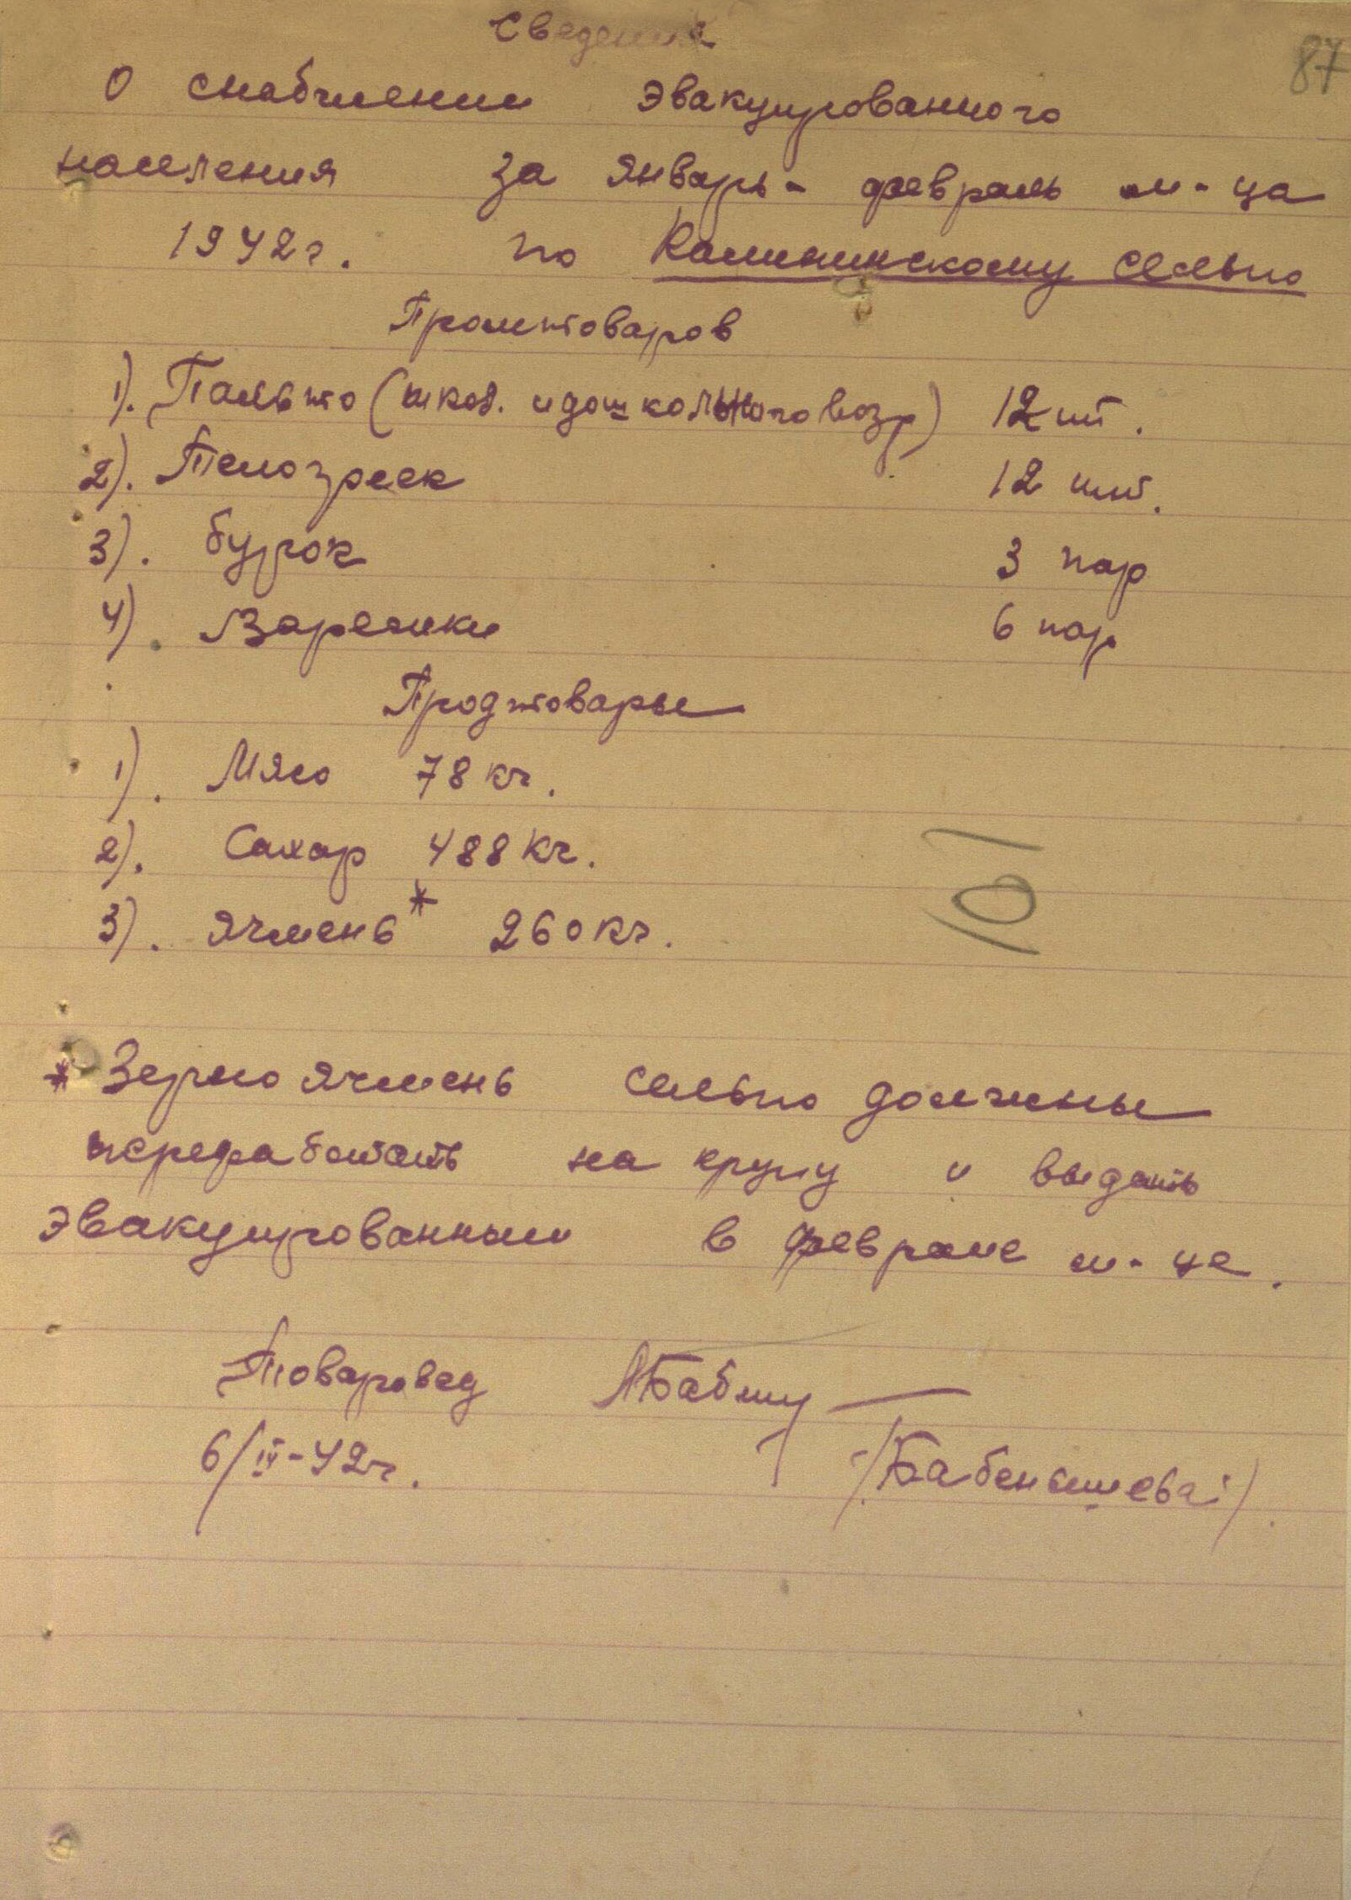 Сведения
87
О снабжении эвакуированного
населения за январь - февраль м-ца
1942г. по Калининскому сельпо
Промтоваров
1). Пальто (шкод. и дошкольного возр) 12 шт.
2). Телогреек 12 шт.
3). бурок 3 пар
4). Варежки 6 пар
Продтовары
1). Мясо 78 кг.
2). Сахар 488 кг.
3). Ячмень* 260 кг.
101
* Зерно ячмень сельпо должны
переработать на крупу и выдать
эвакуированным в феврале м-це.
Товаровед
6/IV-42г. /Бабенышева/